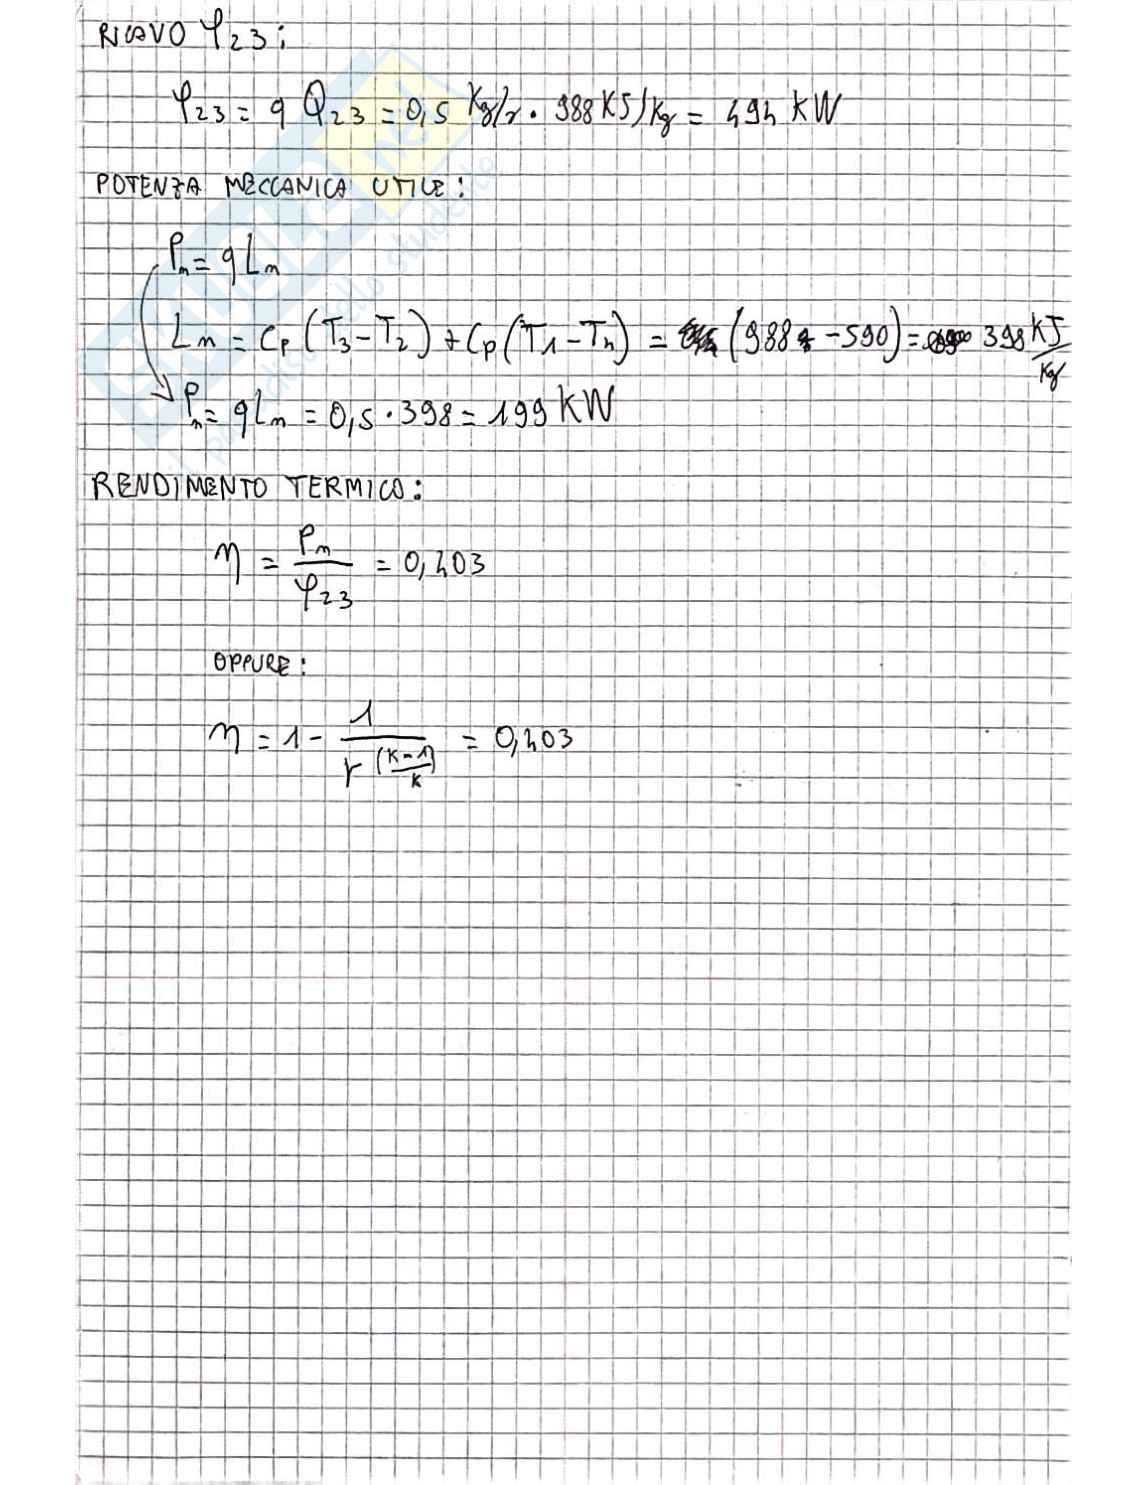 RICAVO φ23:
φ23 = q Q23 = 0,5 Kg/s · 988 KJ/Kg = 494 KW
POTENZA MECCANICA UTILE:
Pm = q Lm
Lm = Cp (T3 - T2) + Cp (T1 - T4) = (988 - 590) = 398 KJ/Kg
Pm = q Lm = 0,5 · 398 = 199 KW
RENDIMENTO TERMICO:
η = Pm / φ23 = 0,403
OPPURE:
η = 1 - 1 / r^((K-1)/K) = 0,403